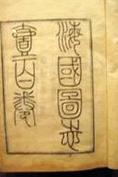 海國圖志
百卷